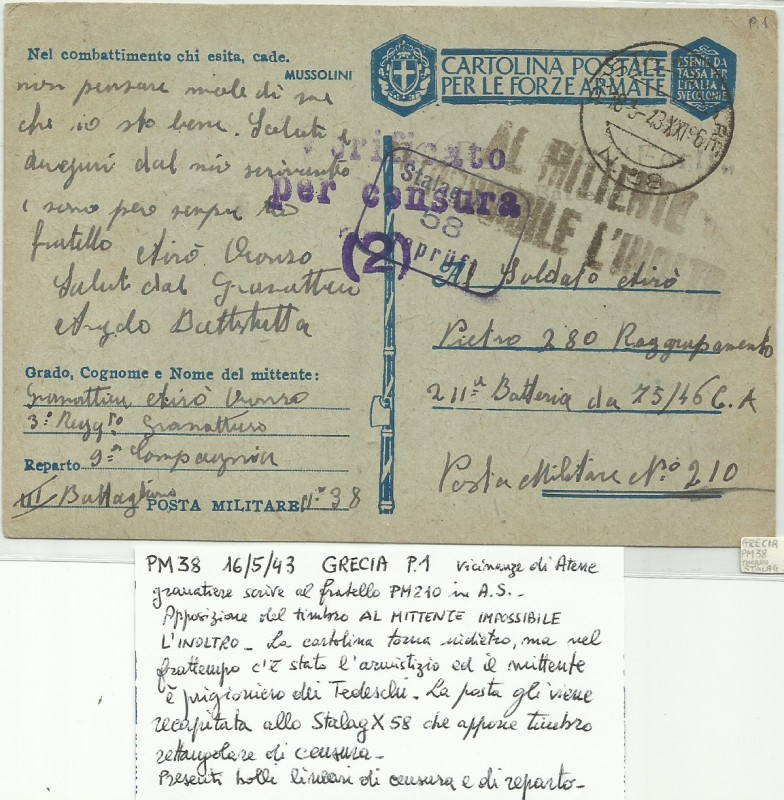 P.1
Nel combattimento chi esita, cade.
MUSSOLINI
CARTOLINA POSTALE
PER LE FORZE ARMATE
ESENTE DA
TASSA PER
L'ITALIA
S VE COLONIE
non pensare male di me
che io sto bene. Saluti e
auguri dal mio
e sono per sempre tuo
fratello Airò
Saluti dal Granattiere
Angelo Battistella
Verificato
per censura
(2)
Stalag
58
Geprüft
AL MITTENTE
IMPOSSIBILE L'INOLTRO
N. 38
Al Soldato Airò
Pietro 280 Raggrupamento
211ª Batteria da 75/46 C.A
Posta Militare Nº 210
Grado, Cognome e Nome del mittente:
Granattiere Airò
3º Regg.to Granattieri
Reparto 9ª Compagnia
III Battaglione POSTA MILITARE Nº 38
GRECIA
PM38
STALAG
PM38 16/5/43 GRECIA P.1 vicinanze di Atene
granatiere scrive al fratello PM210 in A.S.-
Apposizione del timbro AL MITTENTE IMPOSSIBILE
L'INOLTRO - La cartolina torna indietro, ma nel
frattempo c'è stato l'armistizio ed il mittente
è prigioniero dei Tedeschi. La posta gli viene
recapitata allo Stalag X 58 che appone timbro
rettangolare di censura -
Presenti bolli lineari di censura e di reparto -